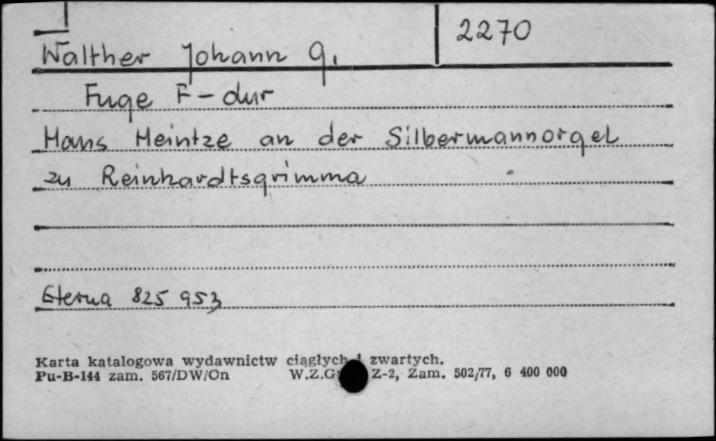 2270
Walther Johann G.
Fuge F-dur
Hans Heintze an der Silbermannorgel
zu Reinhardtsgrimma
Eterna 825 953
Karta katalogowa wydawnictw ciągłych i zwartych.
Pu-B-144 zam. 567/DW/On W.Z.G Z-2, Zam. 502/77, 6 400 000